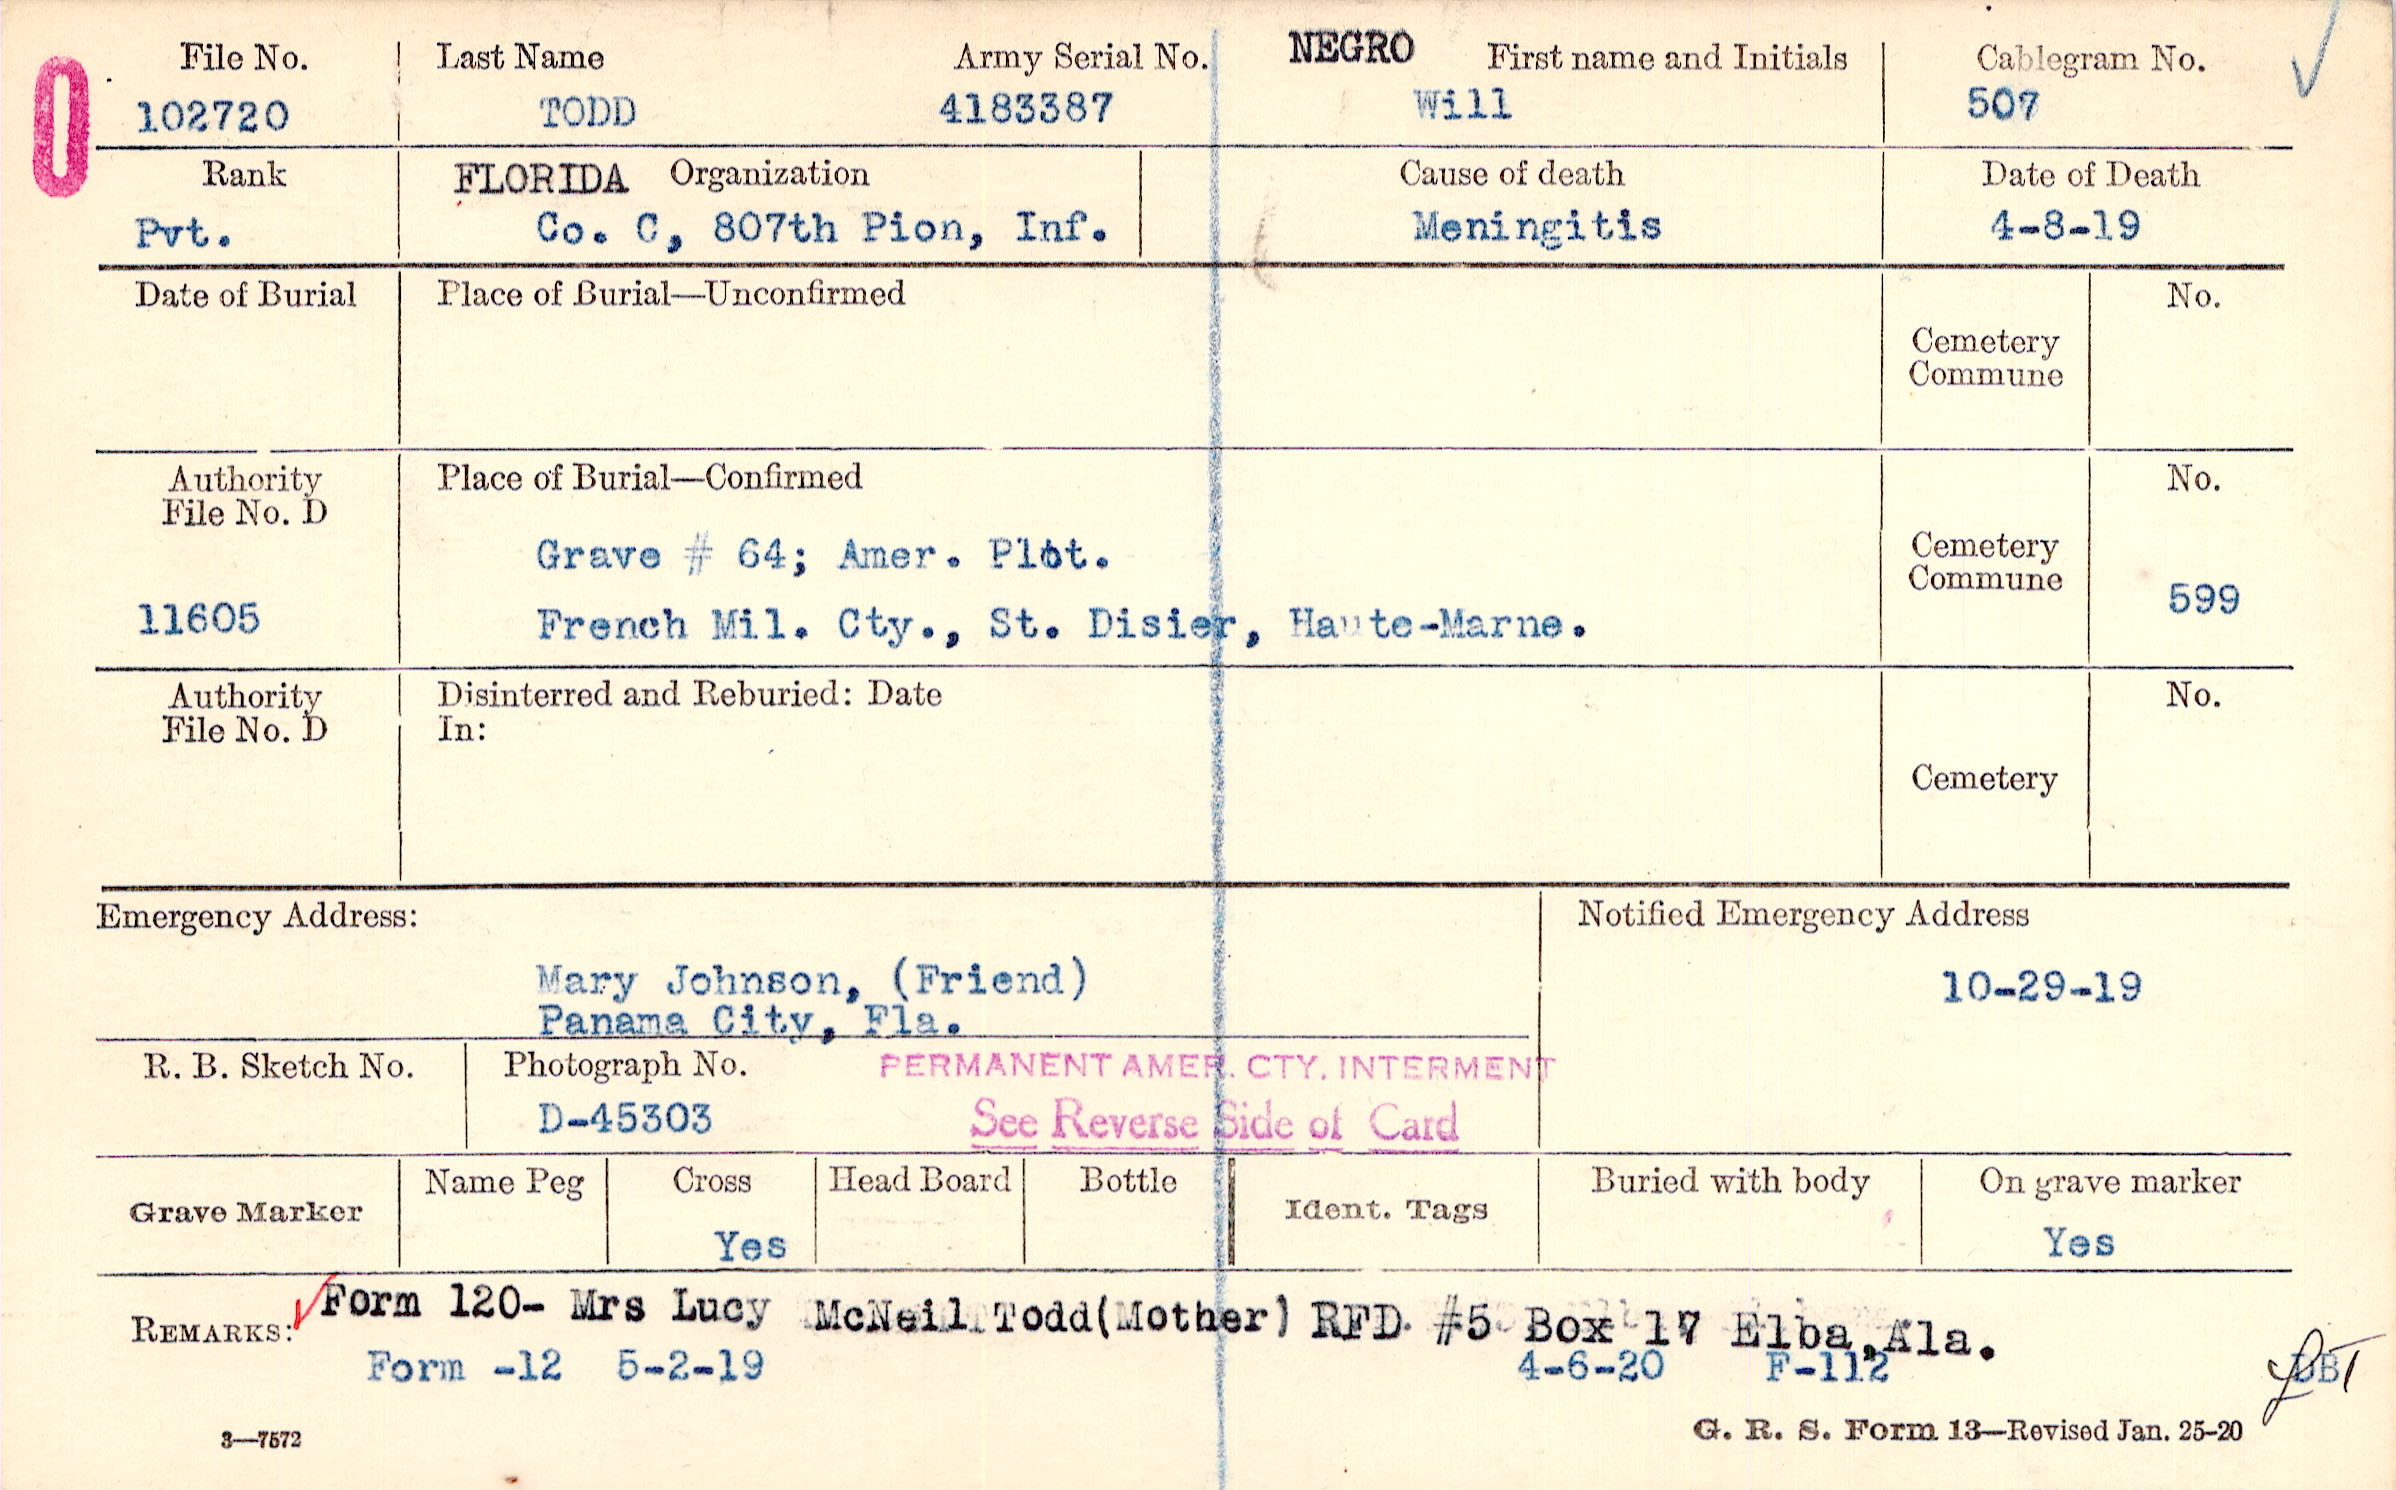 File No. Last Name Army Serial No. NEGRO First name and Initials Cablegram No.
0
102720 TODD 4183387 Will 507
Rank FLORIDA Organization Cause of death Date of Death
Pvt. Co. C, 807th Pion, Inf. Meningitis 4-8-19
Date of Burial Place of Burial—Unconfirmed No.
Cemetery
Commune
Authority Place of Burial—Confirmed No.
File No. D
Grave # 64; Amer. Plot. Cemetery
Commune
11605 French Mil. Cty., St. Disier, Haute-Marne. 599
Authority Disinterred and Reburied: Date No.
File No. D In:
Cemetery
Emergency Address: Notified Emergency Address
Mary Johnson, (Friend) 10-29-19
Panama City, Fla.
R. B. Sketch No. Photograph No. PERMANENT AMER. CTY. INTERMENT
D-45303 See Reverse Side of Card
Grave Marker Name Peg Cross Head Board Bottle Ident. Tags Buried with body On grave marker
Yes Yes
REMARKS: Form 120- Mrs Lucy McNeil Todd(Mother) RFD. #5 Box 17 Elba,Ala.
Form -12 5-2-19 4-6-20 F-112
3—7572 G. R. S. Form 13—Revised Jan. 25-20